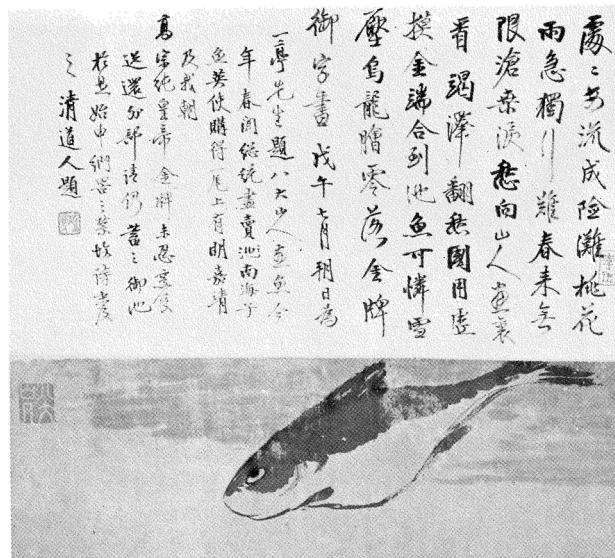 處〻安流成險灘桃花
雨急獨行難春來無
限滄桑淚愁向山人畫裏
看 竭澤翻愁國用虛
摸金端合到池魚可憐雪
壓烏龍膾零落金牌
御字書 戊午七月朔日為
一亭先生題八大山人畫魚今
年春聞總統盡賣池南海子
魚英使購得尾上有明嘉靖
及我朝
高宗純皇帝金牌未忍烹食
送還外部請仍蓄之御池
於是始申網罟之禁故詩
之 清道人題